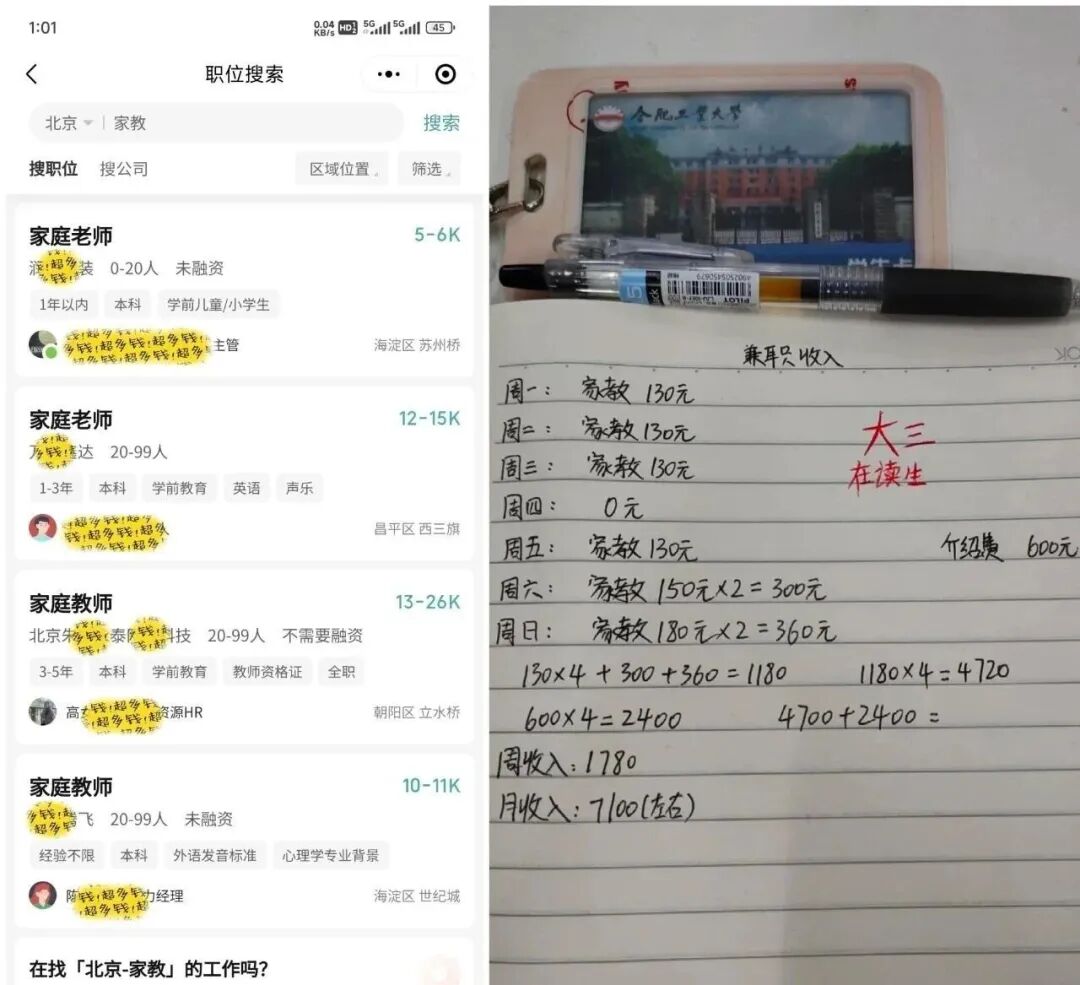 1:01
0.04 KB/s HD 5G 5G 45
职位搜索
北京 家教 搜索
搜职位 搜公司 区域位置 筛选
家庭老师 5-6K
装 0-20人 未融资
1年以内 本科 学前儿童/小学生
钱!超多钱!超多钱!超多 主管 海淀区 苏州桥
家庭老师 12-15K
达 20-99人
1-3年 本科 学前教育 英语 声乐
钱!超多钱!超多 昌平区 西三旗
家庭教师 13-26K
北京 泰 科技 20-99人 不需要融资
3-5年 本科 学前教育 教师资格证 全职
高 钱!超多钱! 资源HR 朝阳区 立水桥
家庭教师 10-11K
飞 20-99人 未融资
经验不限 本科 外语发音标准 心理学专业背景
陈 钱!超多钱 力经理 海淀区 世纪城
在找「北京-家教」的工作吗?
合肥工业大学
学生卡
PILOT
4902505450679
兼职只收入
周一: 家教 130元
周二: 家教 130元
周三: 家教 130元
大三
在读生
周四: 0元
周五: 家教 130元 介绍费 600元
周六: 家教 150元×2=300元
周日: 家教 180元×2=360元
130×4+300+360=1180 1180×4=4720
600×4=2400 4700+2400=
周收入: 1780
月收入: 7100(左右)